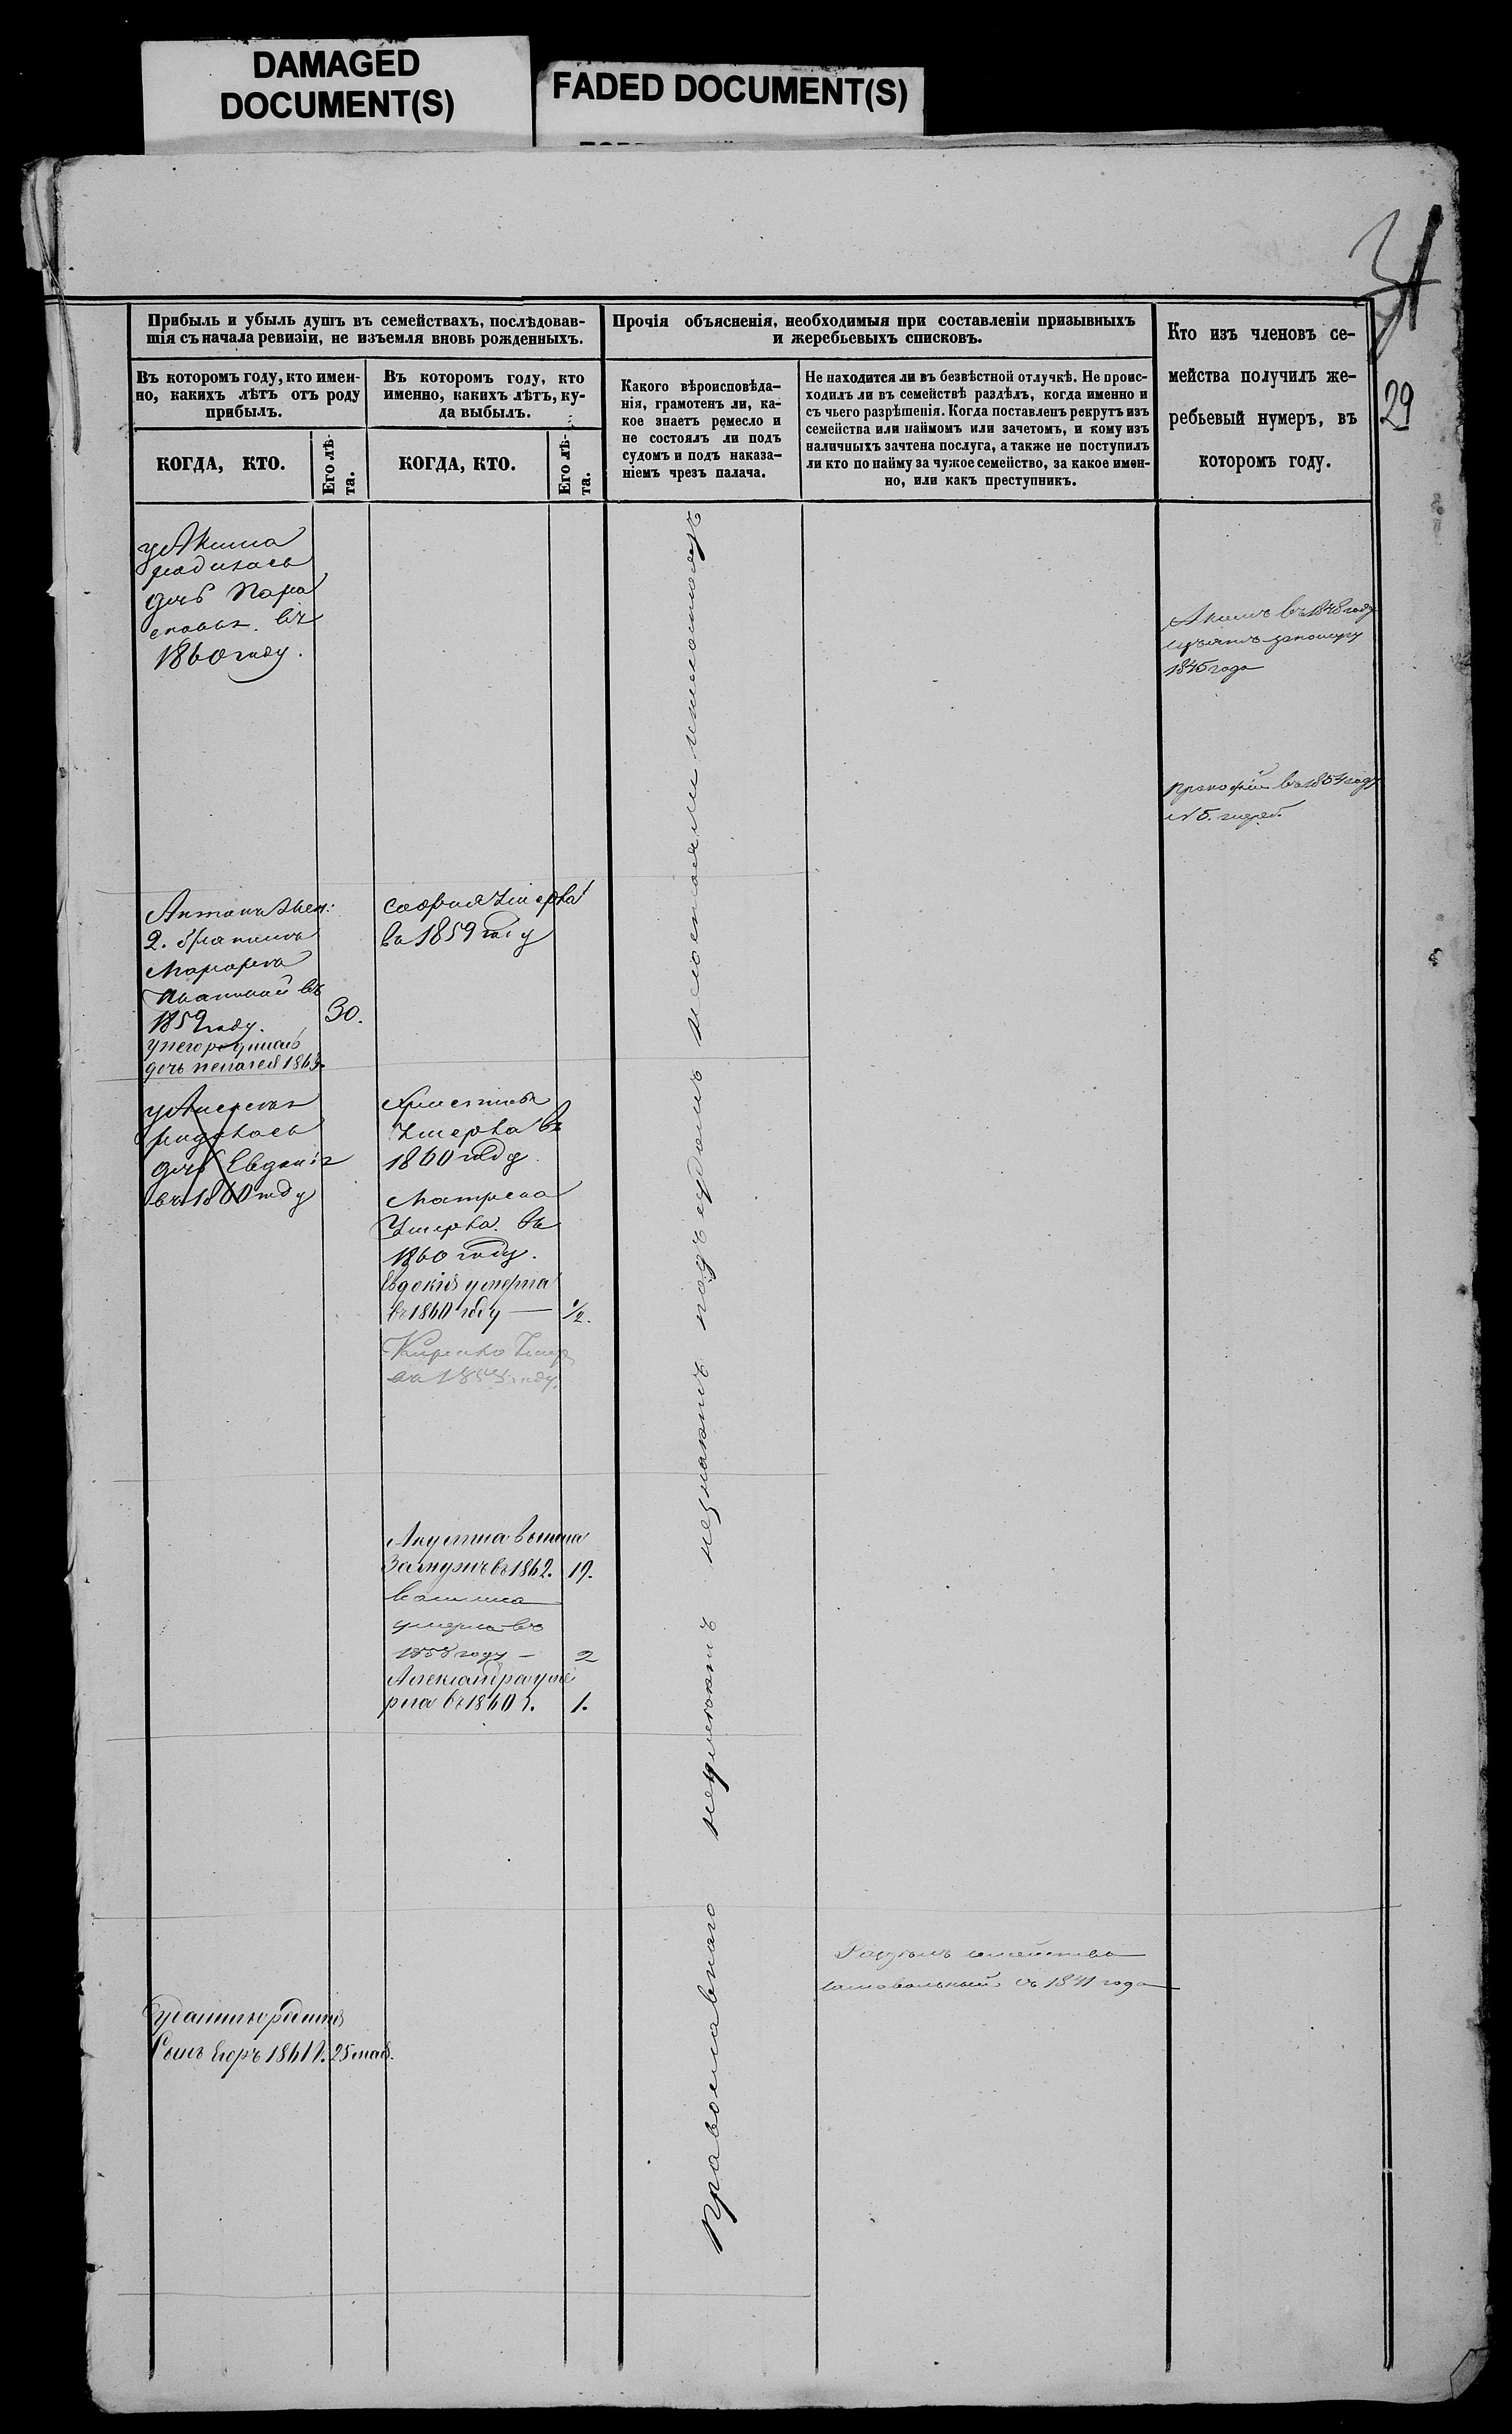 DAMAGED
DOCUMENT(S)
FADED DOCUMENT(S)
31
29
Прибыль и убыль душъ въ семействахъ, послѣдовав-
шія съ начала ревизіи, не изъемля вновь рожденныхъ.
Въ которомъ году, кто имен-
но, какихъ лѣтъ отъ роду
прибылъ.
КОГДА, КТО.
Его лѣ-
та.
Въ которомъ году, кто
именно, какихъ лѣтъ, ку-
да выбылъ.
КОГДА, КТО.
Его лѣ-
та.
Прочія объясненія, необходимыя при составленіи призывныхъ
и жеребьевыхъ списковъ.
Какого вѣроисповѣда-
нія, грамотенъ ли, ка-
кое знаетъ ремесло и
не состоялъ ли подъ
судомъ и подъ наказа-
ніемъ чрезъ палача.
Не находится ли въ безвѣстной отлучкѣ. Не проис-
ходилъ ли въ семействѣ раздѣлъ, когда именно и
съ чьего разрѣшенія. Когда поставленъ рекрутъ изъ
семейства или наймомъ или зачетомъ, и кому изъ
наличныхъ зачтена послуга, а также не поступилъ
ли кто по найму за чужое семейство, за какое имен-
но, или какъ преступникъ.
Кто изъ членовъ се-
мейства получилъ же-
ребьевый нумеръ, въ
которомъ году.
у Акима
родилась
дочь Пара
сковья. въ
1860 году.
Акимъ въ 1848 году
1845 года
Прокофій въ 1854 году
№ 5. жереб.
Антонъ жен:
2. бракомъ
Марфа
въ
1859 году.
30.
у него родилась
дочь Пелагея 1863.
София Умерла
въ 1859 году
родилась
дочь Евдокія
въ 1860 году
Христина
Умерла въ
1860 году.
Матрена
Умерла. въ
1860 году.
Евдокія умерла
въ 1860 году — 1/2.
Умер
въ 185 году.
Акулина вышла
Замужъ въ 1862. 19.
умерла въ
1858 году — 2
Александра уме
рла въ 1860 г. 1.
Православнаго подъ судомъ не состояли
Раздѣлъ семейства
самовольный съ 1841 года
родился
Сынъ Егоръ 1861 г. 25 мая.